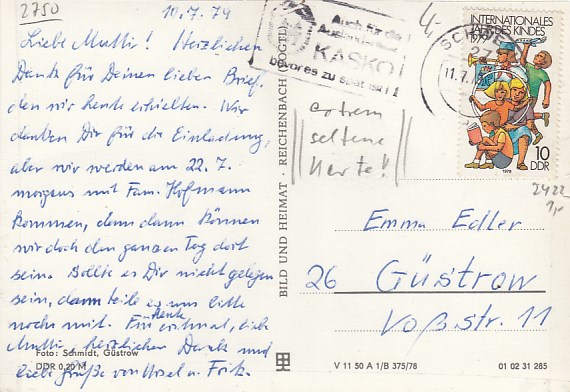 2750
10.7.79
Liebe Mutti! Herzlichen
Dank für Deinen lieben Brief,
den wir heute erhielten. Wir
danken Dir für die Einladung,
aber wir werden am 22.7.
morgens mit Fam. Hofmann
kommen, denn dann können
wir doch den ganzen Tag dort
sein. Sollte es Dir nicht gelegen
sein, dann teile es uns bitte
noch mit. Für heute erstmal, liebe
Mutti, herzlichen Dank und
liebe Grüße von Ursel u. Fritz.
Foto: Schmidt, Güstrow
DDR 0,20 M
BILD UND HEIMAT · REICHENBACH (VOGTL)
Auch für die
KASKO
bevor es zu spät ist!
4,-
SCHWERIN
27
11.7.79
INTERNATIONALES
JAHR DES KINDES
1979
10
DDR
extrem
seltene
Karte!
2422
1,-
Emma Edler
26 Güstrow
Voßstr. 11
V 11 50 A 1/B 375/78
01 02 31 285